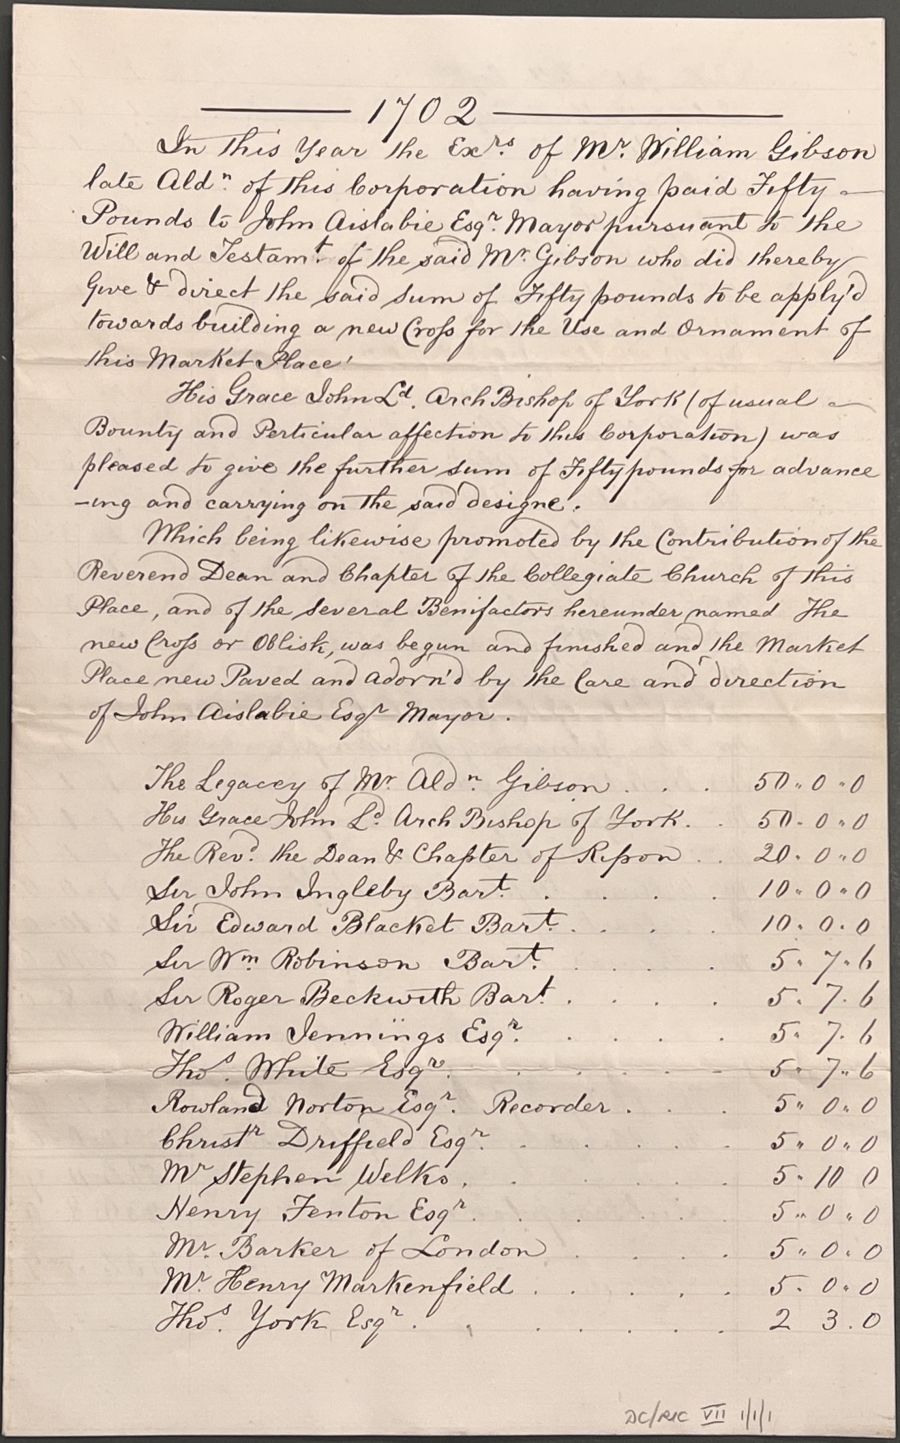 1702
In this Year the Exrs of Mr. William Gibson
late Aldn. of this Corporation having paid Fifty
Pounds to John Aislabie Esqr. Mayor pursuant to the
Will and Testamt. of the said Mr. Gibson who did thereby
Give & direct the said sum of Fifty pounds to be apply'd
towards building a new Cross for the Use and Ornament of
this Market Place'
His Grace John Ld. Arch Bishop of York (of usual
Bounty and Perticular affection to this Corporation) was
pleased to give the further sum of Fifty pounds for advance
-ing and carrying on the said designe.
Which being likewise promoted by the Contribution of the
Reverend Dean and Chapter of the Collegiate Church of this
Place, and of the several Benifactors hereunder named The
new Cross or Oblisk, was begun and finished and the Market
Place new Paved and adorn'd by the Care and direction
of John Aislabie Esqr Mayor.
The Legacey of Mr. Aldn. Gibson . . . 50 " 0 " 0
His Grace John Ld Arch Bishop of York. . 50 - 0 " 0
The Revd. the Dean & Chapter of Ripon . . 20 " 0 " 0
Sir John Ingleby Bart. . . . . 10 " 0 " 0
Sir Edward Blacket Bart. . . . . 10 . 0 . 0
Sir Wm. Robinson Bart. . . . . 5 " 7 " 6
Sir Roger Beckwith Bart. . . . . 5 . 7 . 6
William Jennings Esqr. . . . . 5 " 7 . 6
Thos. White Esqr. . . . . 5 " 7 " 6
Rowland Norton Esqr. Recorder . . . 5 " 0 " 0
Christr Driffield Esqr. . . . . 5 " 0 " 0
Mr Stephen Welks. . . . . 5 " 10 0
Henry Fenton Esqr. . . . . 5 " 0 " 0
Mr. Barker of London . . . . 5 " 0 . 0
Mr. Henry Markenfield . . . . 5 . 0 . 0
Thos. York Esqr. . . . . . 2 3 . 0
DC/RIC VII 1/1/1